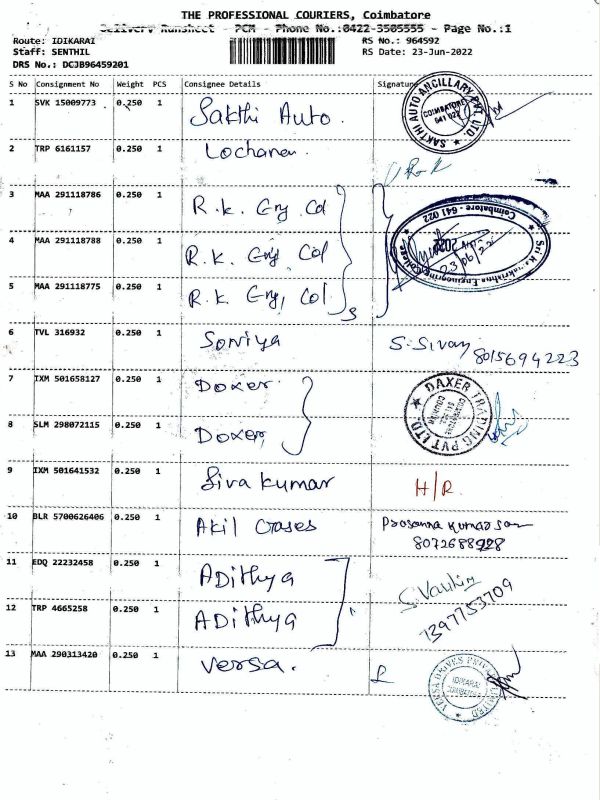 THE PROFESSIONAL COURIERS, Coimbatore
Delivery Runsheet - PCM - Phone No.:0422-3505555 - Page No.:1
Route: IDIKARAI RS No.: 964592
Staff: SENTHIL RS Date: 23-Jun-2022
DRS No.: DCJB96459201
S No Consignment No Weight PCS Consignee Details Signature
1 SVK 15009773 0.250 1 Sakthi Auto. SAKTHI AUTO ANCILLARY PVT. LTD. COIMBATORE 641 022
2 TRP 6161157 0.250 1 Lochanen
3 MAA 291118786 0.250 1 R.k. Eng Col
4 MAA 291118788 0.250 1 R.k. Eng Col Sri Ramakrishna Engineering College Coimbatore - 641 022 23/06/22
5 MAA 291118775 0.250 1 R.k. Eng, Col 3
6 TVL 316932 0.250 1 Soniya S. Sivan 8015694223
7 IXM 501658127 0.250 1 Daxer DAXER TRADING PVT LTD
8 SLM 298072115 0.250 1 Daxer,
9 IXM 501641532 0.250 1 Siva kumar H/R
10 BLR 5700626406 0.250 1 Akil Gases Prasanna kumar
8072688928
11 EDQ 22232458 0.250 1 ADithya
12 TRP 4665258 0.250 1 ADithya 7397753709
13 MAA 290313420 0.250 1 Versa. VERSA DRIVES PRIVATE LIMITED IDIKARAI COIMBATORE